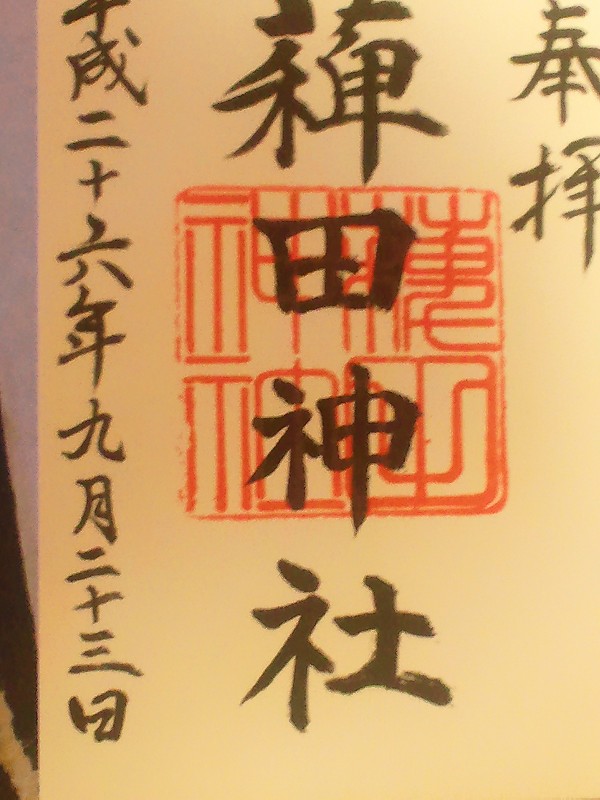 奉拝
薭田神社
平成二十六年九月二十三日